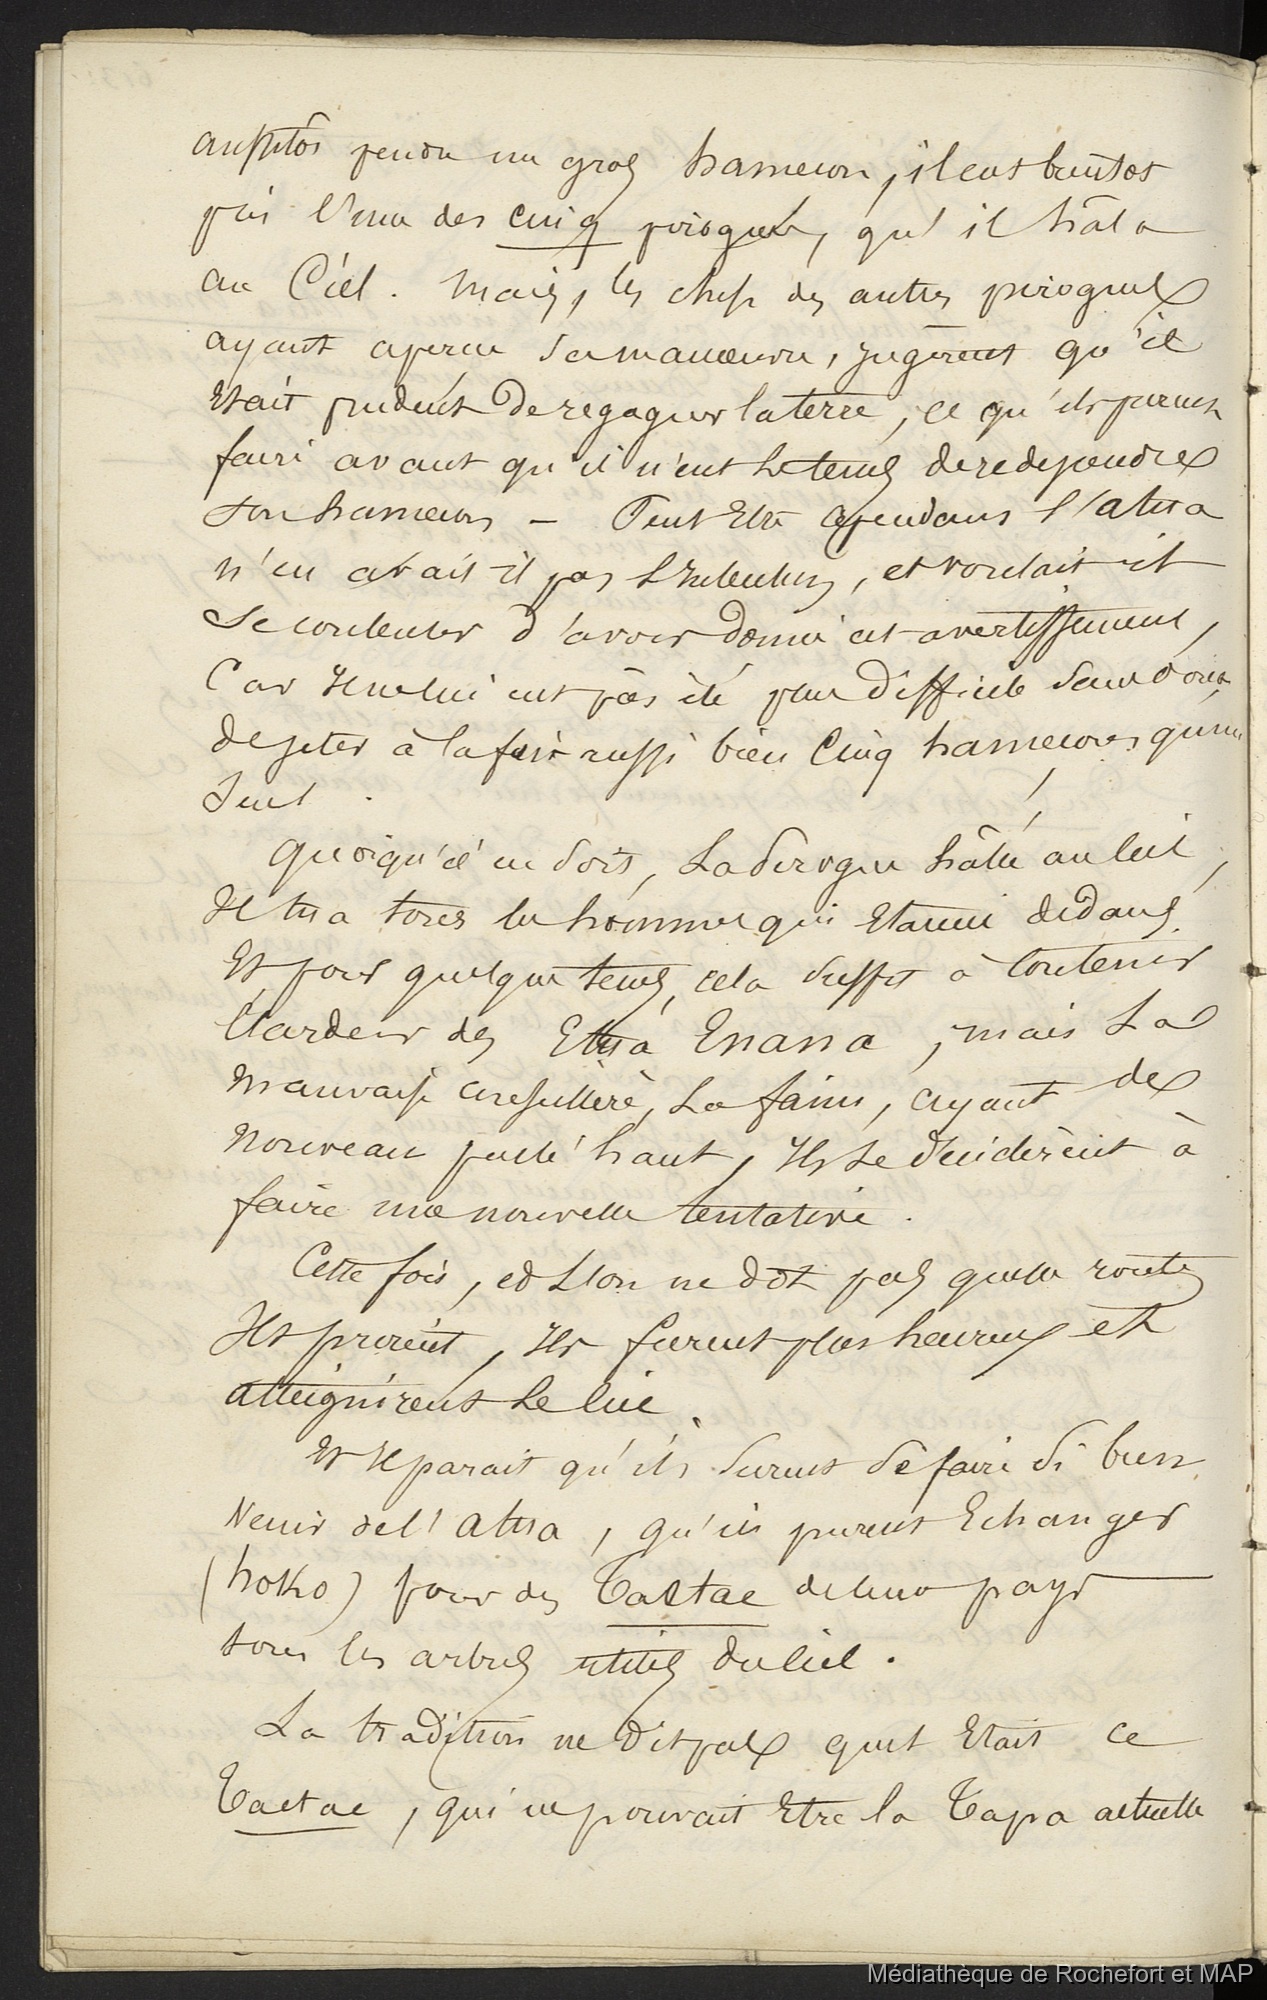 aussitôt pendu un gros hameçon, il eut bientôt
pris l'une des cinq pirogues, qu'il hâla
au Ciel. Mais, les chefs des autres pirogues
ayant aperçu sa manœuvre, jugèrent qu'il
Etait prudent de regagner la terre, ce qu'ils purent
faire avant qu'il n'eut le tems de redependre
son hameçon — Peut Etre cependant l'atua
n'en avait-il pas l'Intention, et voulait-il
se contenter d'avoir donné cet avertissement,
Car Il ne lui eut pas été plus difficile sans doute
de jeter à la fois aussi bien Cinq hameçons qu'un
seul.
Quoiqu'il en soit, La Pirogue hâlée au Ciel,
Il tua tous les hommes qui Etaient dedans,
Et pour quelque tems, cela suffit à Contenir
l'Ardeur des Etua Enana, mais La
mauvaise conseillère, La faim, ayant de
Nouveau parlé haut, Ils se décidèrent à
faire une nouvelle tentative.
Cette fois, et L'on ne dit pas quelle route
Ils prirent, Ils furent plus heureux et
atteignirent le Ciel.
Et Il parait qu'ils surent se faire si bien
Venir de l'Atua, qu'ils purent Echanger
(hoko) pour des Taetae de leur pays
tous les arbres utiles du Ciel.
La tradition ne dit pas quel Etait ce
Taetae, qui ne pouvait Etre la Tapa actuelle
Médiathèque de Rochefort et MAP